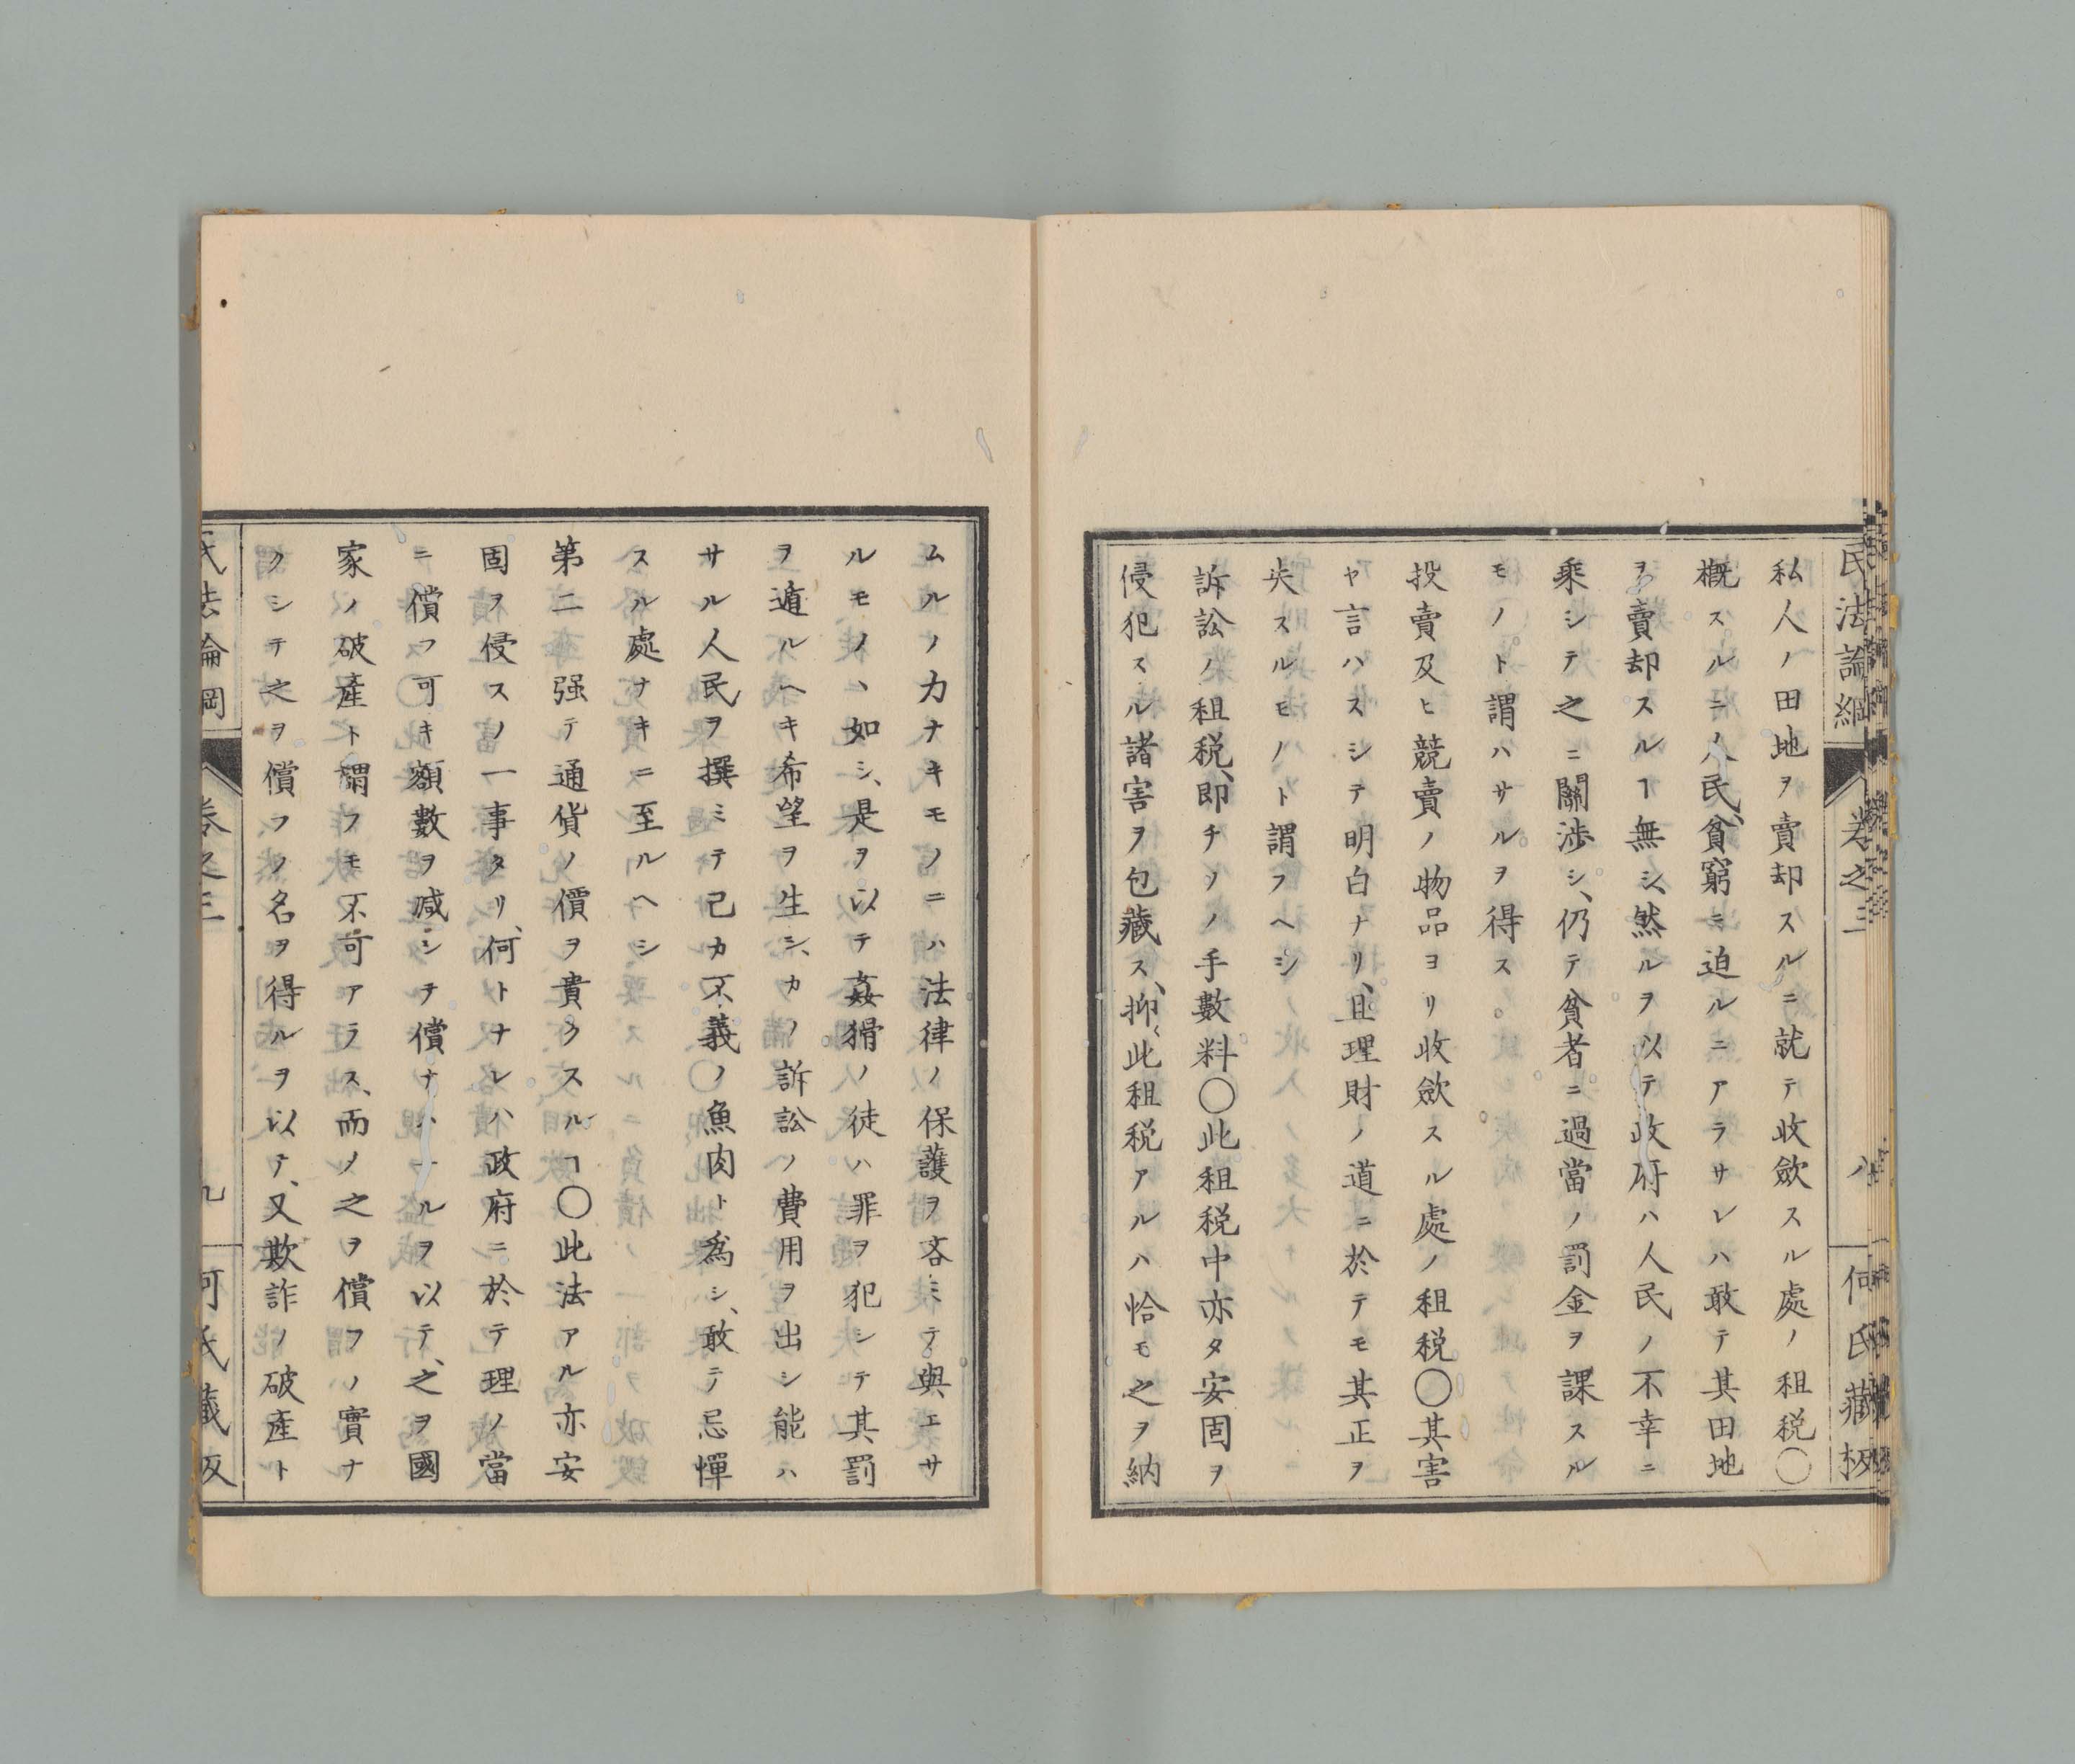 民法論綱 卷之三 八 何氏藏板
私人ノ田地ヲ賣却スルニ就テ收斂スル處ノ租税〇
概スルニノ人民、貧窮ニ迫ルニアラサレハ敢テ其田地
ヲ賣却スルヿ無シ、然ルヲ以テ政府ハ人民ノ不幸ニ
乘シテ之ニ關渉シ、仍テ貧者ニ過當ノ罰金ヲ課スル
モノト謂ハサルヲ得ス
投賣及ヒ競賣ノ物品ヨリ收斂スル處ノ租税〇其害
ヤ言ハスシテ明白ナリ、且理財ノ道ニ於テモ其正ヲ
失スルモノト謂フヘシ
訴訟ノ租税、即チソノ手數料〇此租税中亦タ安固ヲ
侵犯スル諸害ヲ包藏ス、抑〻此租税アルハ恰モ之ヲ納
ムルノ力ナキモノニハ法律ノ保護ヲ吝ミテ與エサ
ルモノヽ如シ、是ヲ以テ姦猾ノ徒ハ罪ヲ犯シテ其罰
ヲ遁ルヘキ希望ヲ生シ、カノ訴訟ノ費用ヲ出シ能ハ
サル人民ヲ撰ミテ己カ不義ノ魚肉ト爲シ、敢テ忌憚
スル處ナキニ至ルヘシ
第二强テ通貨ノ價ヲ貴クスルヿ〇此法アル亦安
固ヲ侵スノ一事タリ、何トナレハ政府ニ於テ理ノ當
ニ償フ可キ額數ヲ减シテ償ナハールヲ以テ、之ヲ國
家ノ破産ト謂フモ不可アラス、而ノ之ヲ償フノ實ナ
クシテ之ヲ償フノ名ヲ得ルヲ以テ、又欺詐ノ破産ト
民法論綱 卷之三 九 何氏藏板